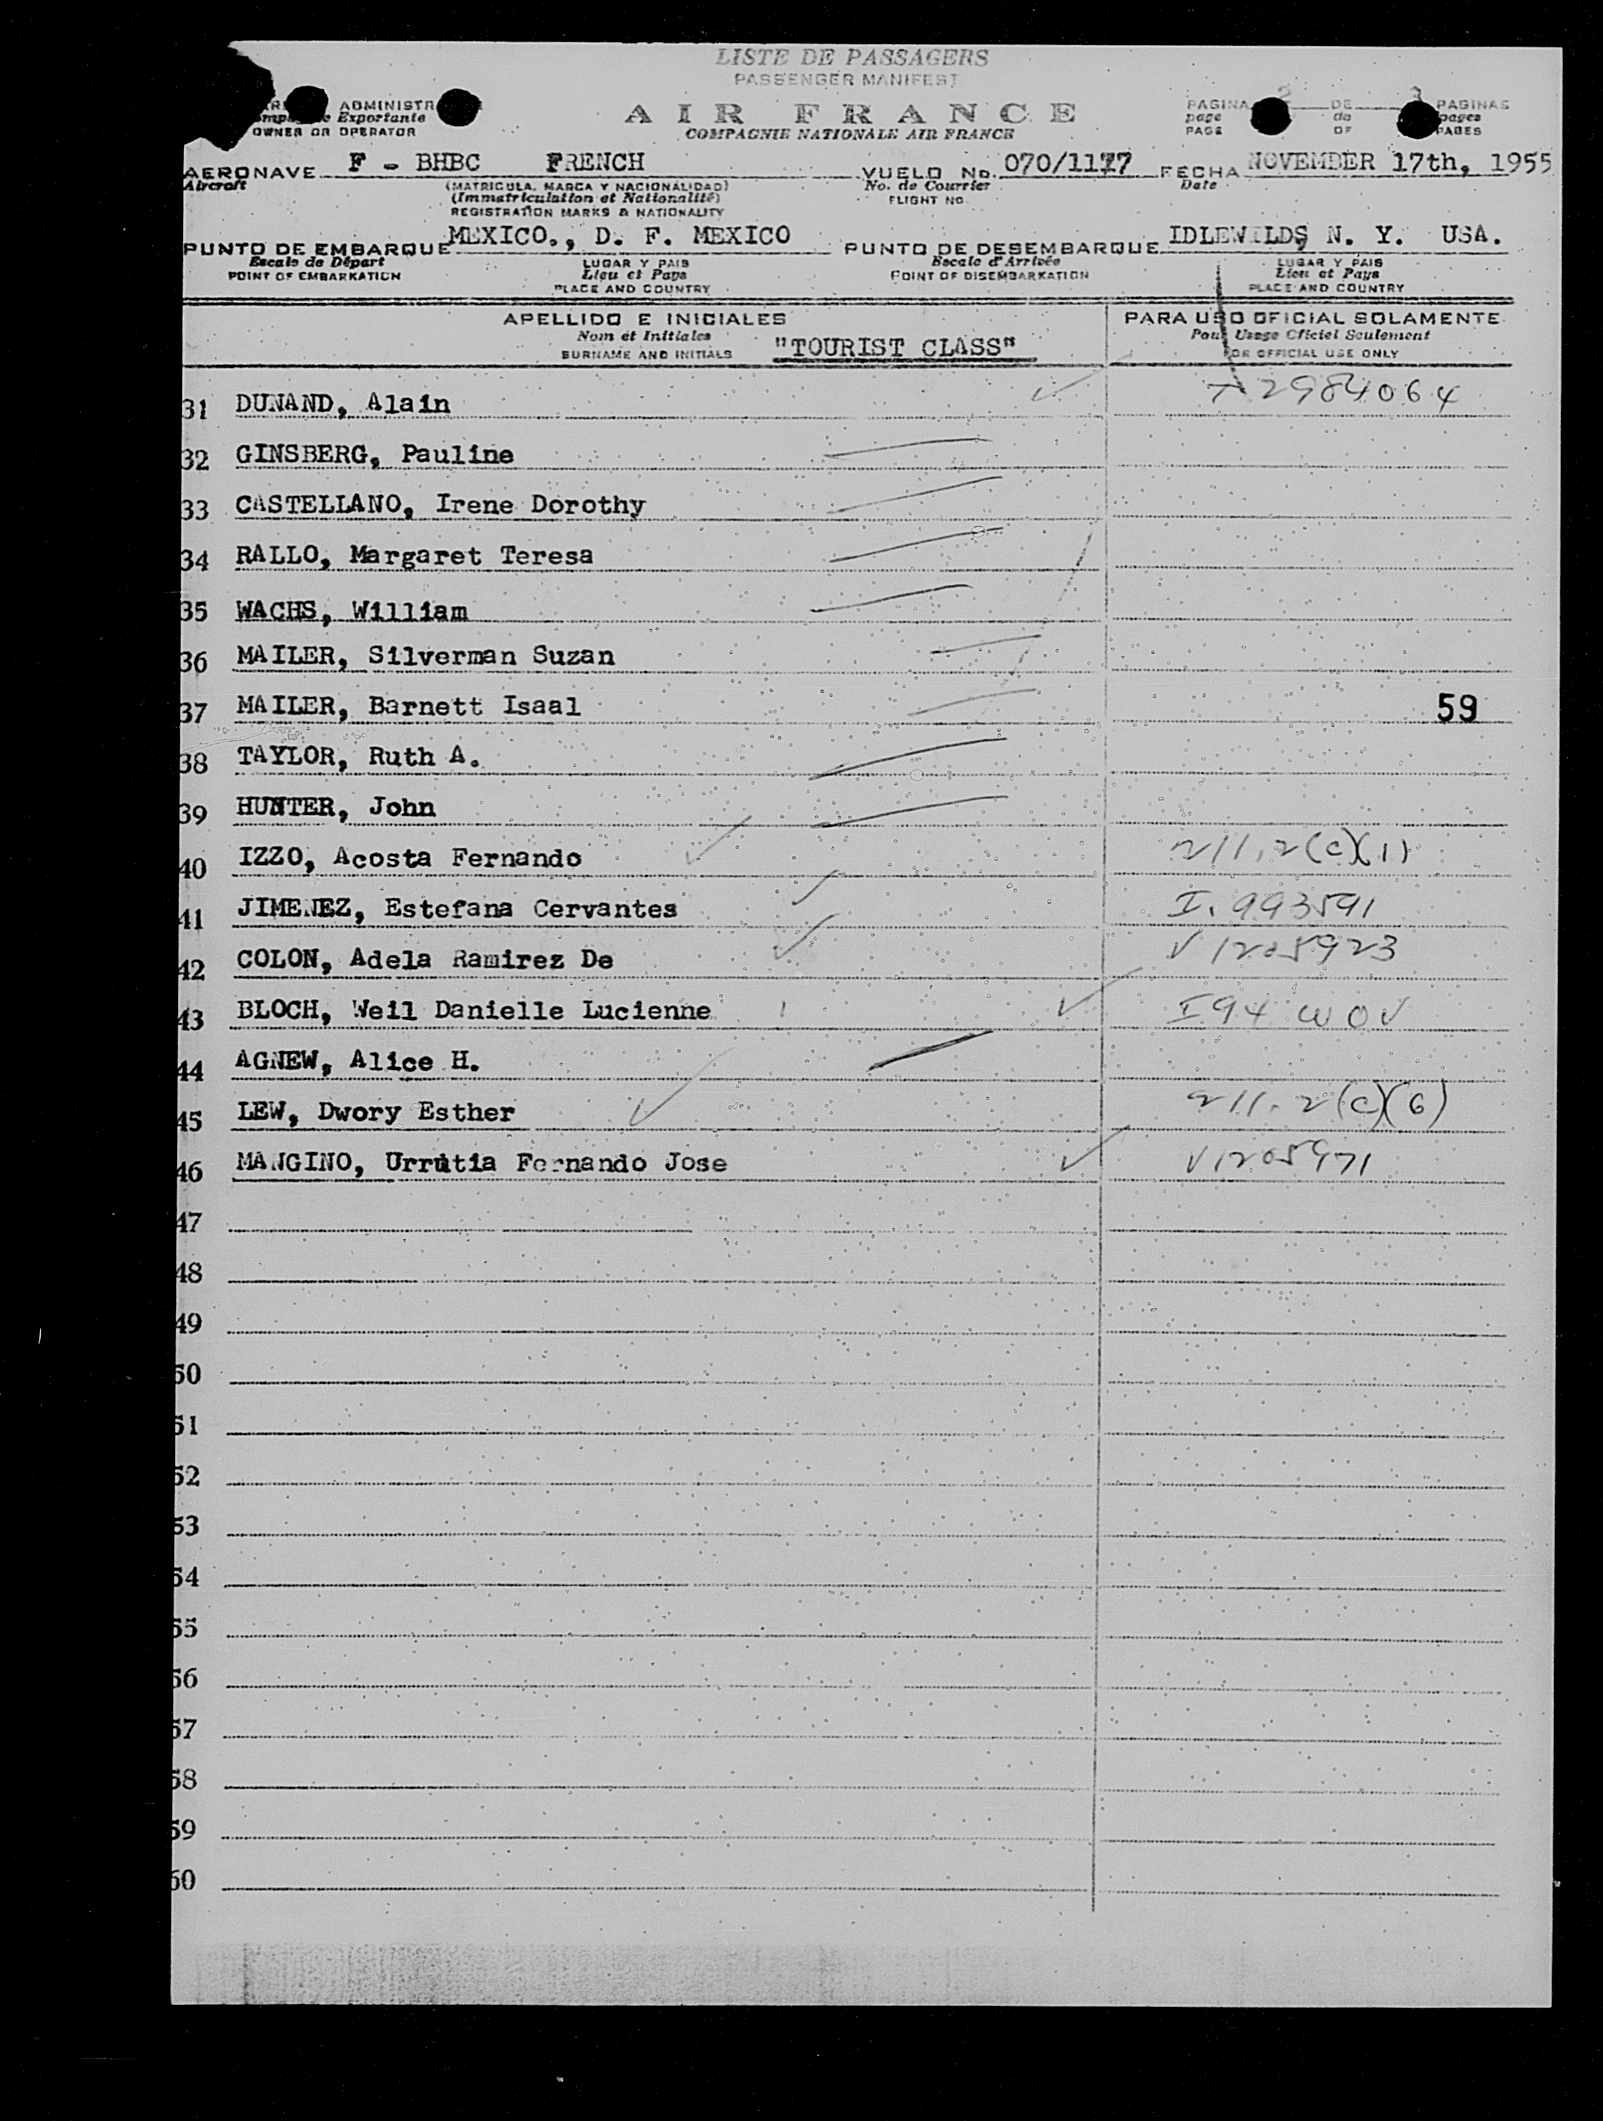 LISTE DE PASSAGERS
PASSENGER MANIFEST
ADMINISTR
Exportante
OWNER OR OPERATOR
AIR FRANCE
COMPAGNIE NATIONALE AIR FRANCE
PAGINA 2 DE 3 PAGINAS
page de pages
PAGE OF PAGES
AERONAVE F - BHBC FRENCH VUELO No. 070/1177 FECHA NOVEMBER 17th, 1955
Aircraft (MATRICULA, MARCA Y NACIONALIDAD) No. de Courrier Date
(Immatriculation et Nationalité) FLIGHT NO.
REGISTRATION MARKS & NATIONALITY
PUNTO DE EMBARQUE MEXICO., D. F. MEXICO PUNTO DE DESEMBARQUE IDLEWILDS, N. Y. USA.
Escale de Départ LUGAR Y PAIS Escale d'Arrivée LUGAR Y PAIS
POINT OF EMBARKATION Lieu et Pays POINT OF DISEMBARKATION Lieu et Pays
PLACE AND COUNTRY PLACE AND COUNTRY
APELLIDO E INICIALES PARA USO OFICIAL SOLAMENTE
Nom et Initiales Pour Usage Officiel Seulement
SURNAME AND INITIALS "TOURIST CLASS" FOR OFFICIAL USE ONLY
31 DUNAND, Alain A2984064
32 GINSBERG, Pauline
33 CASTELLANO, Irene Dorothy
34 RALLO, Margaret Teresa
35 WACHS, William
36 MAILER, Silverman Suzan
37 MAILER, Barnett Isaal 59
38 TAYLOR, Ruth A.
39 HUNTER, John
40 IZZO, Acosta Fernando 211.2(c)(1)
41 JIMENEZ, Estefana Cervantes I. 993591
42 COLON, Adela Ramirez De V1205923
43 BLOCH, Weil Danielle Lucienne I94 WOV
44 AGNEW, Alice H.
45 LEW, Dwory Esther 211.2(c)(6)
46 MANGINO, Urrutia Fernando Jose V1205971
47
48
49
50
51
52
53
54
55
56
57
58
59
60